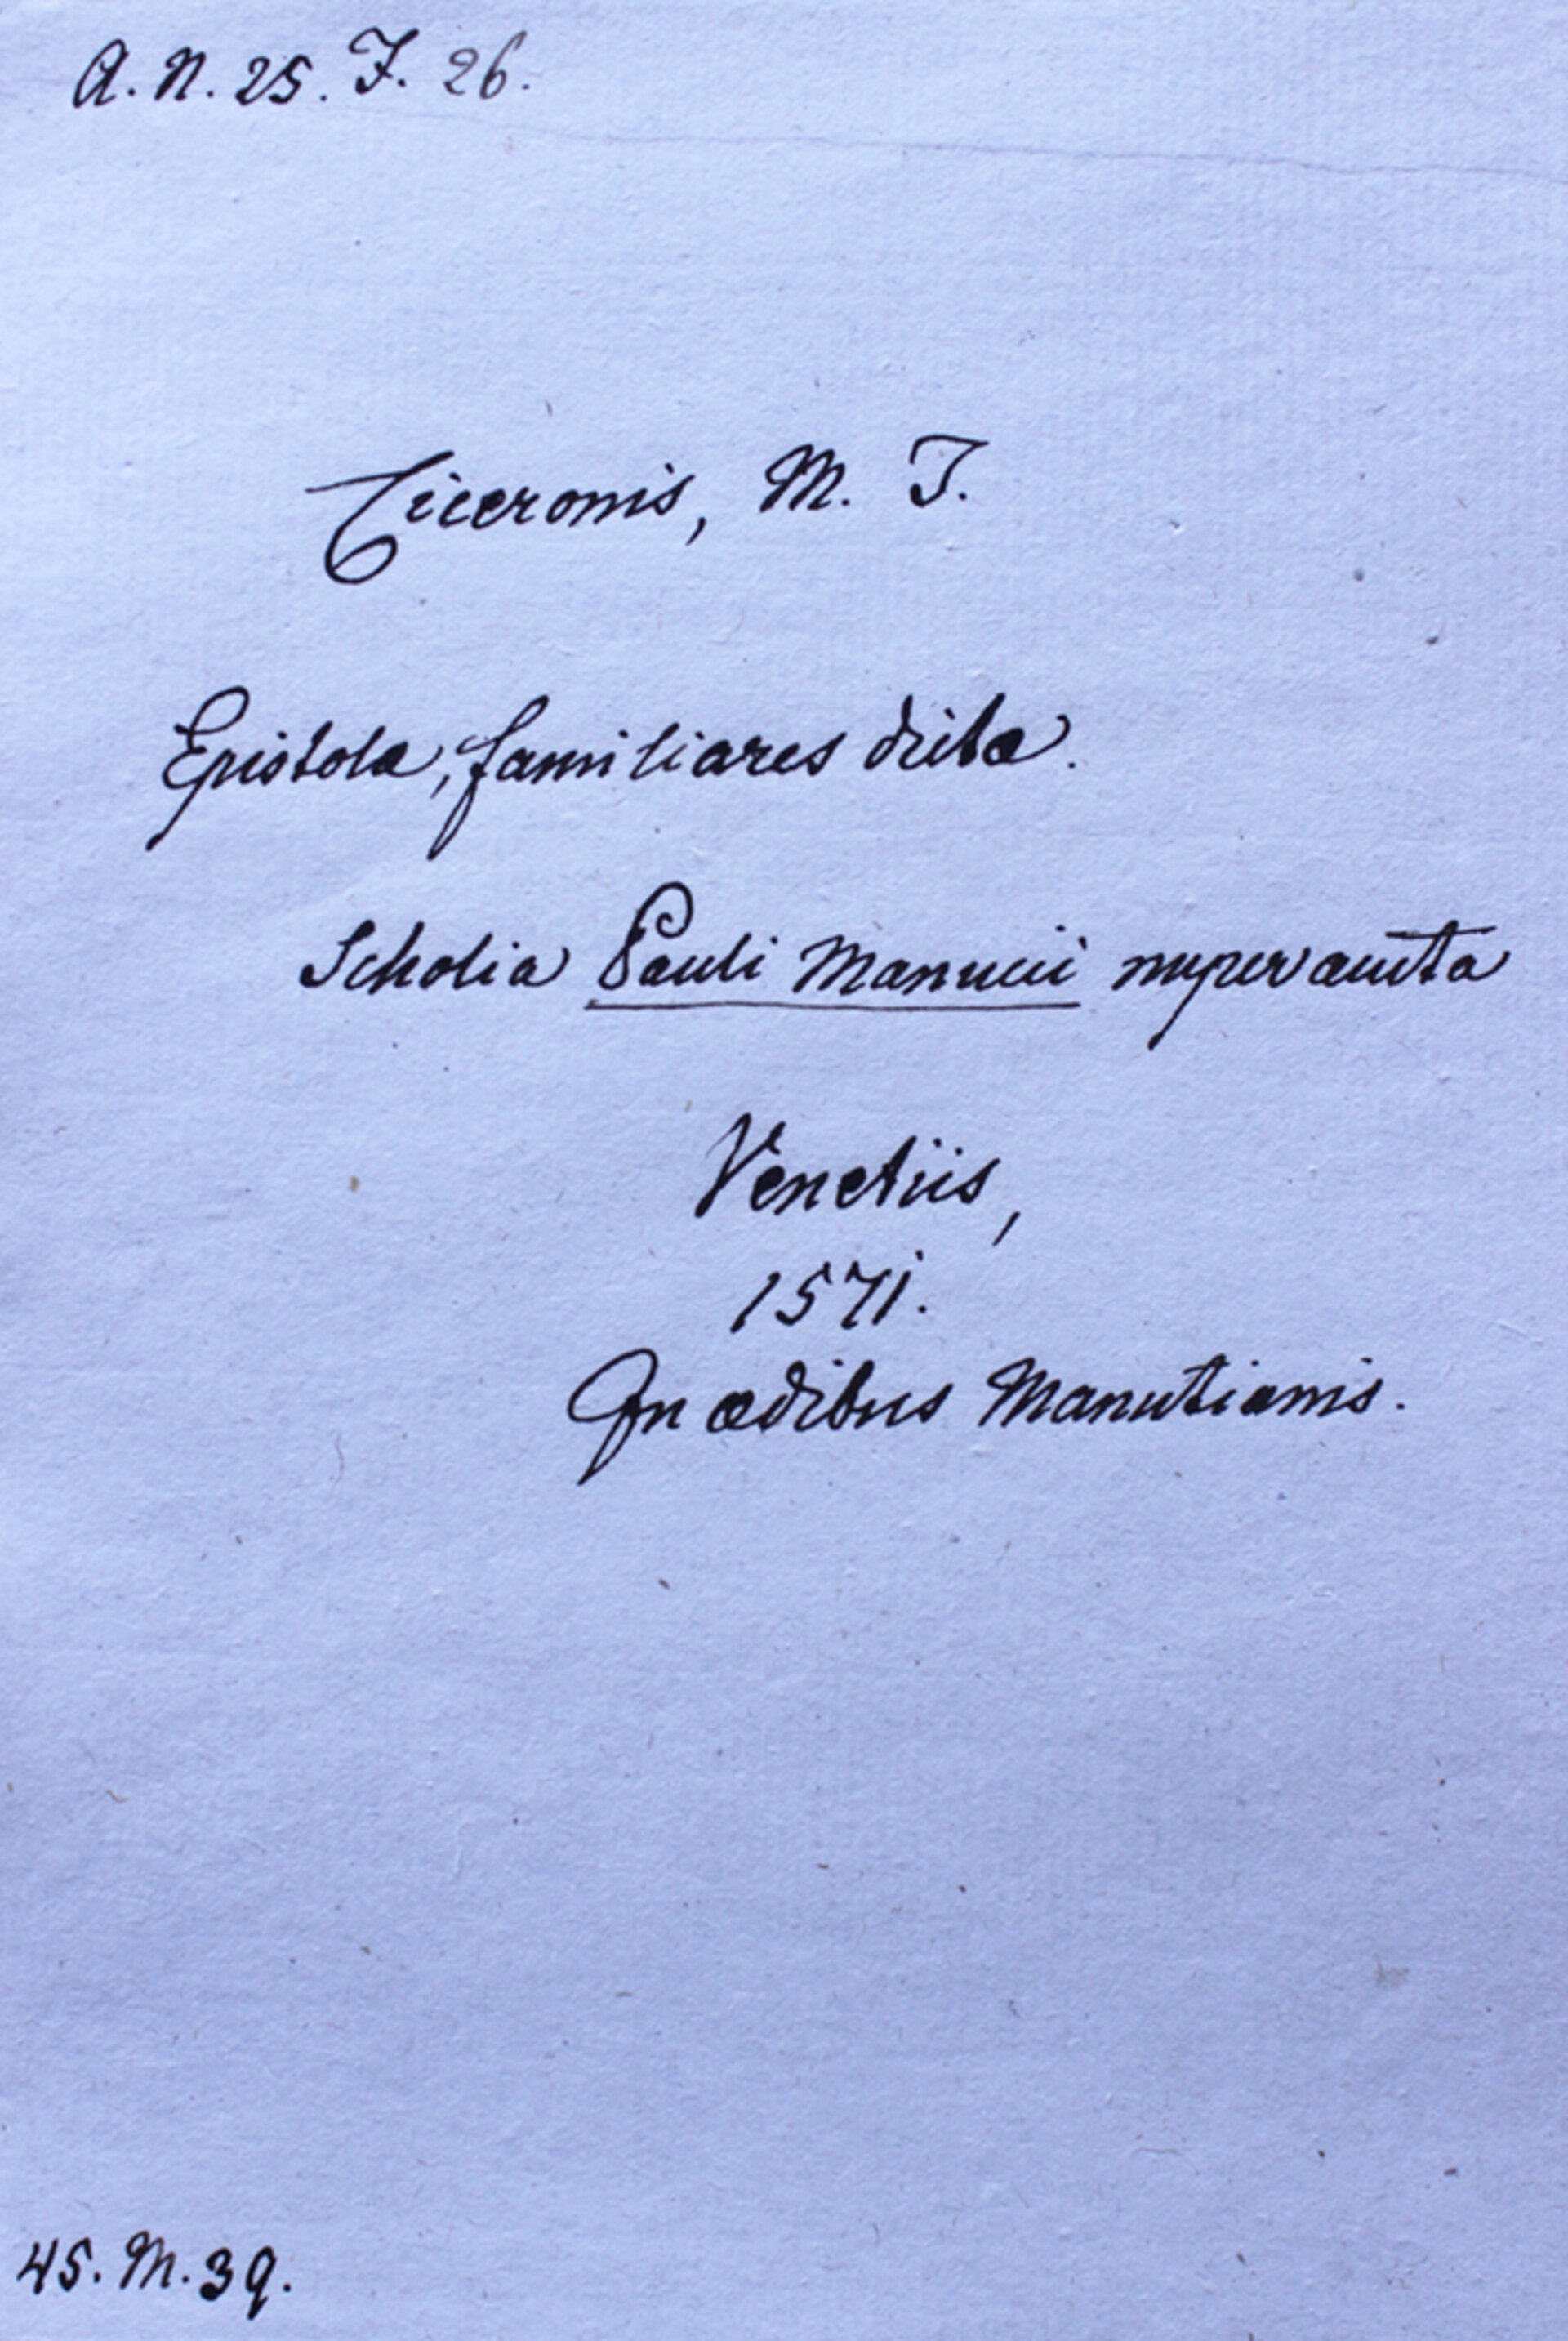 A. N. 25. F. 26.
Ciceronis, M. T.
Epistolæ, familiares dictæ.
Scholia Pauli Manucii nuper aucta
Venetiis,
1571.
In ædibus Manutianis.
45. M. 39.